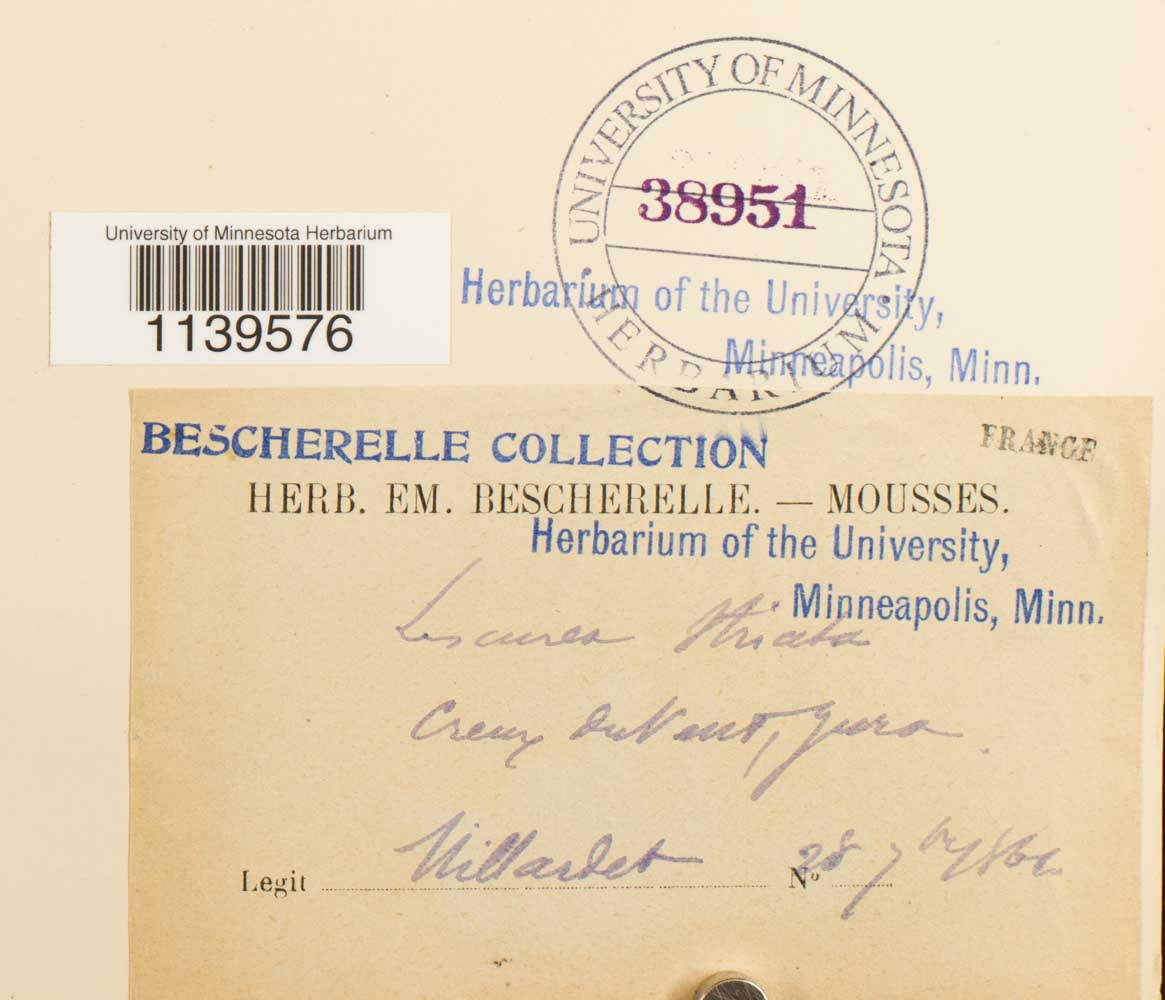 UNIVERSITY OF MINNESOTA
38951
• HERBARIUM •
University of Minnesota Herbarium
1139576
Herbarium of the University,
Minneapolis, Minn.
BESCHERELLE COLLECTION
FRANCE
HERB. EM. BESCHERELLE. — MOUSSES.
Herbarium of the University,
Minneapolis, Minn.
Lescurea striata
Creux du Vent, Jura.
Legit Millardet Nº 28 7bre